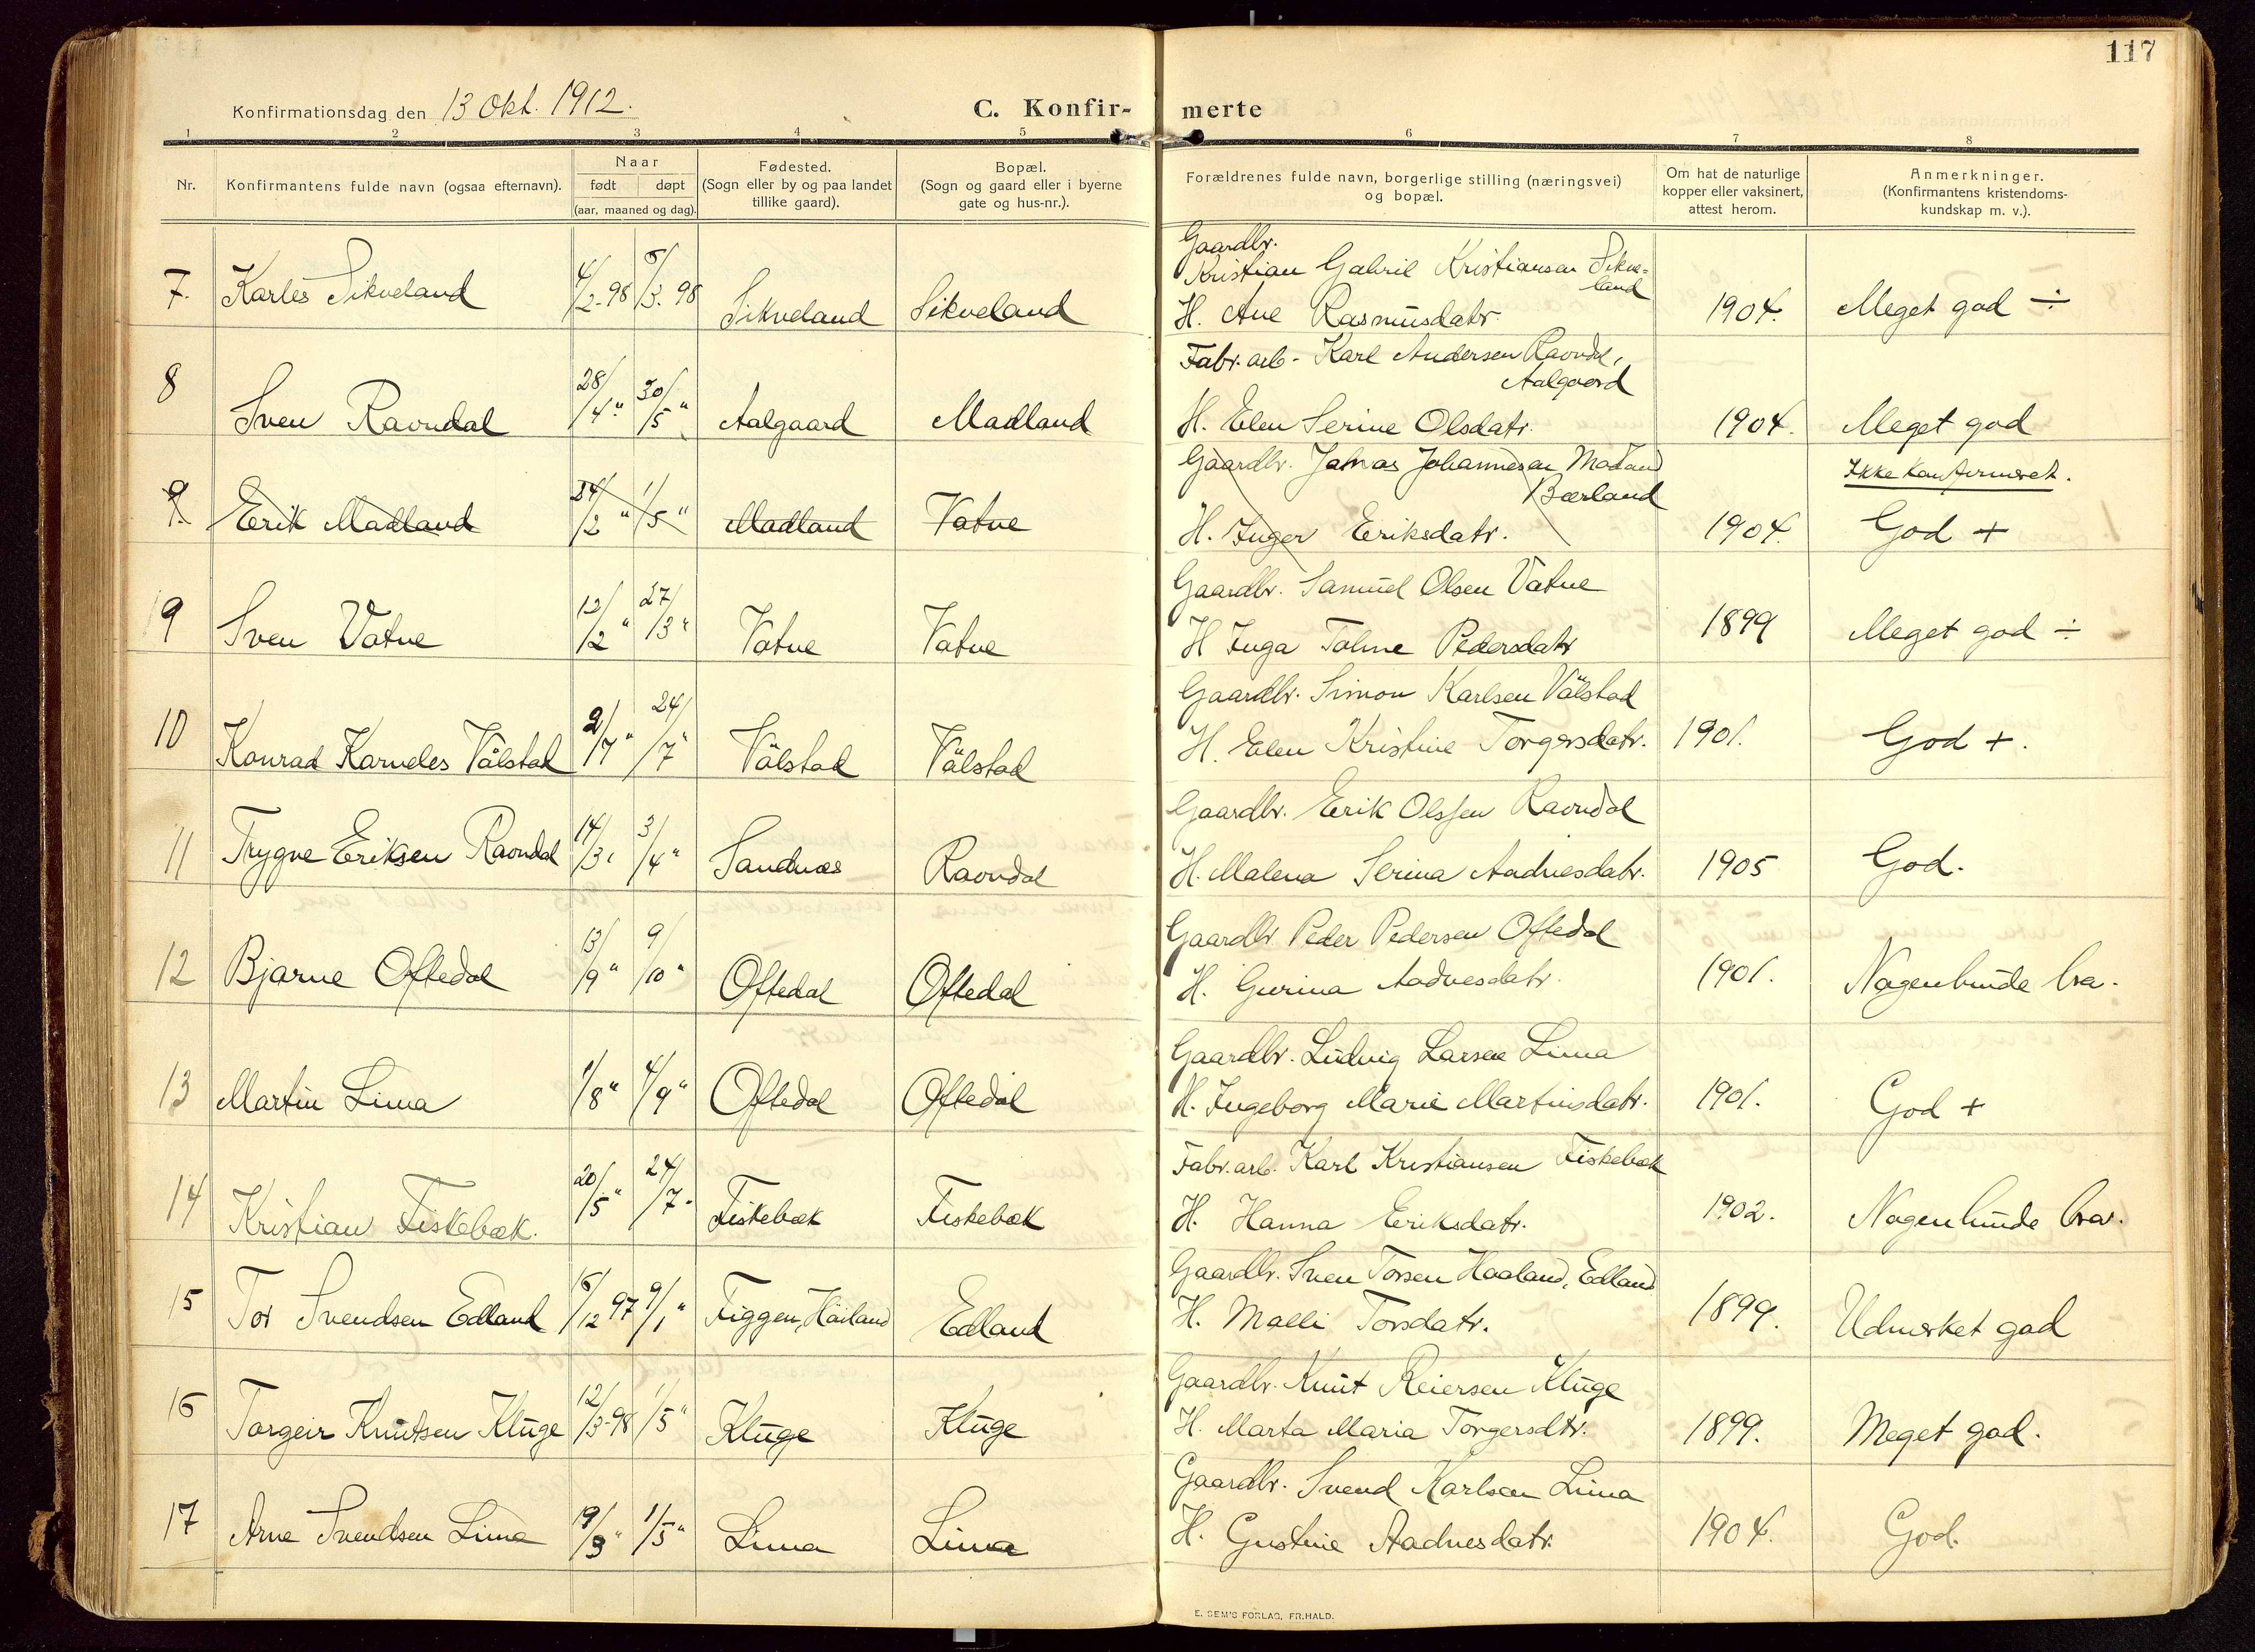 117
Konfirmationsdag den 13 Okt. 1912.
C. Konfir- merte
1 2 3 4 5 6 7 8
Nr.
Konfirmantens fulde navn (ogsaa efternavn).
Naar
født døpt
(aar, maaned og dag).
Fødested.
(Sogn eller by og paa landet
tillike gaard).
Bopæl.
(Sogn og gaard eller i byerne
gate og hus-nr.).
Forældrenes fulde navn, borgerlige stilling (næringsvei)
og bopæl.
Om hat de naturlige
kopper eller vaksinert,
attest herom.
Anmerkninger.
(Konfirmantens kristendoms-
kundskap m. v.).
Gaardbr.
Kristian Gabriel Kristiansen Sikve-
land
7. Karles Sikveland 4/2-98 6/3. 98 Sikveland Sikveland H. Ane Rasmusdatr. 1904. Meget god ÷
Fabr. arb. Karl Andersen Ravndal,
Aalgaard
8 Sven Ravndal 28/4 " 30/5 " Aalgaard Madland H. Elen Serine Olsdatr. 1904. Meget god
Gaardbr. Johannesen Madland
Bærland
Ikke konfirmeret.
9. Erik Madland 24/2 " 1/5 " Madland Vatne H. Inger Eriksdatr. 1904. God +
Gaardbr. Samuel Olsen Vatne
9 Sven Vatne 12/2 " 27/3 " Vatne Vatne H Inga Toline Pedersdatr 1899 Meget god ÷
Gaardbr. Simon Karlsen Välstad
10 Konrad Karneles Välstad 2/7 " 24/7 " Välstad Välstad H. Elen Kristine Torgersdatr. 1901. God +.
Gaardbr. Erik Olssen Ravndal
11 Trygve Eriksen Ravndal 14/3 " 3/4 " Sandnæs Ravndal H. Malena Serina Aadnesdatr. 1905 God.
Gaardbr Peder Pedersen Oftedal
12 Bjarne Oftedal 13/9 " 9/10 " Oftedal Oftedal H. Gurina Aadnesdatr. 1901. Nogenlunde bra.
Gaardbr. Ludvig Larsen Lima
13 Martin Lima 1/8 " 4/9 " Oftedal Oftedal H. Ingeborg Marie Martinsdatr. 1901. God +
Fabr. arb. Karl Kristiansen Fiskebæk
14 Kristian Fiskebæk. 20/5 " 24/7 " Fiskebæk Fiskebæk H. Hanna Eriksdatr. 1902. Nogenlunde bra.
Gaardbr. Sven Torsen Haaland, Edland
15 Tor Svendsen Edland 16/12 97 9/1 " Figgen, Höiland Edland H. Malli Torsdatr. 1899. Udmerket god
Gaardbr. Knut Reiersen Kluge
16 Torgeir Knutsen Kluge 12/3-98 1/5 " Kluge Kluge H. Marta Maria Torgersdtr. 1899. Meget god.
Gaardbr. Svend Karlsen Lima
17 Arne Svendsen Lima 19/3 " 1/5 " Lima Lima H. Gustine Aadnesdatr. 1904. God.
E. SEM'S FORLAG, FR.HALD.